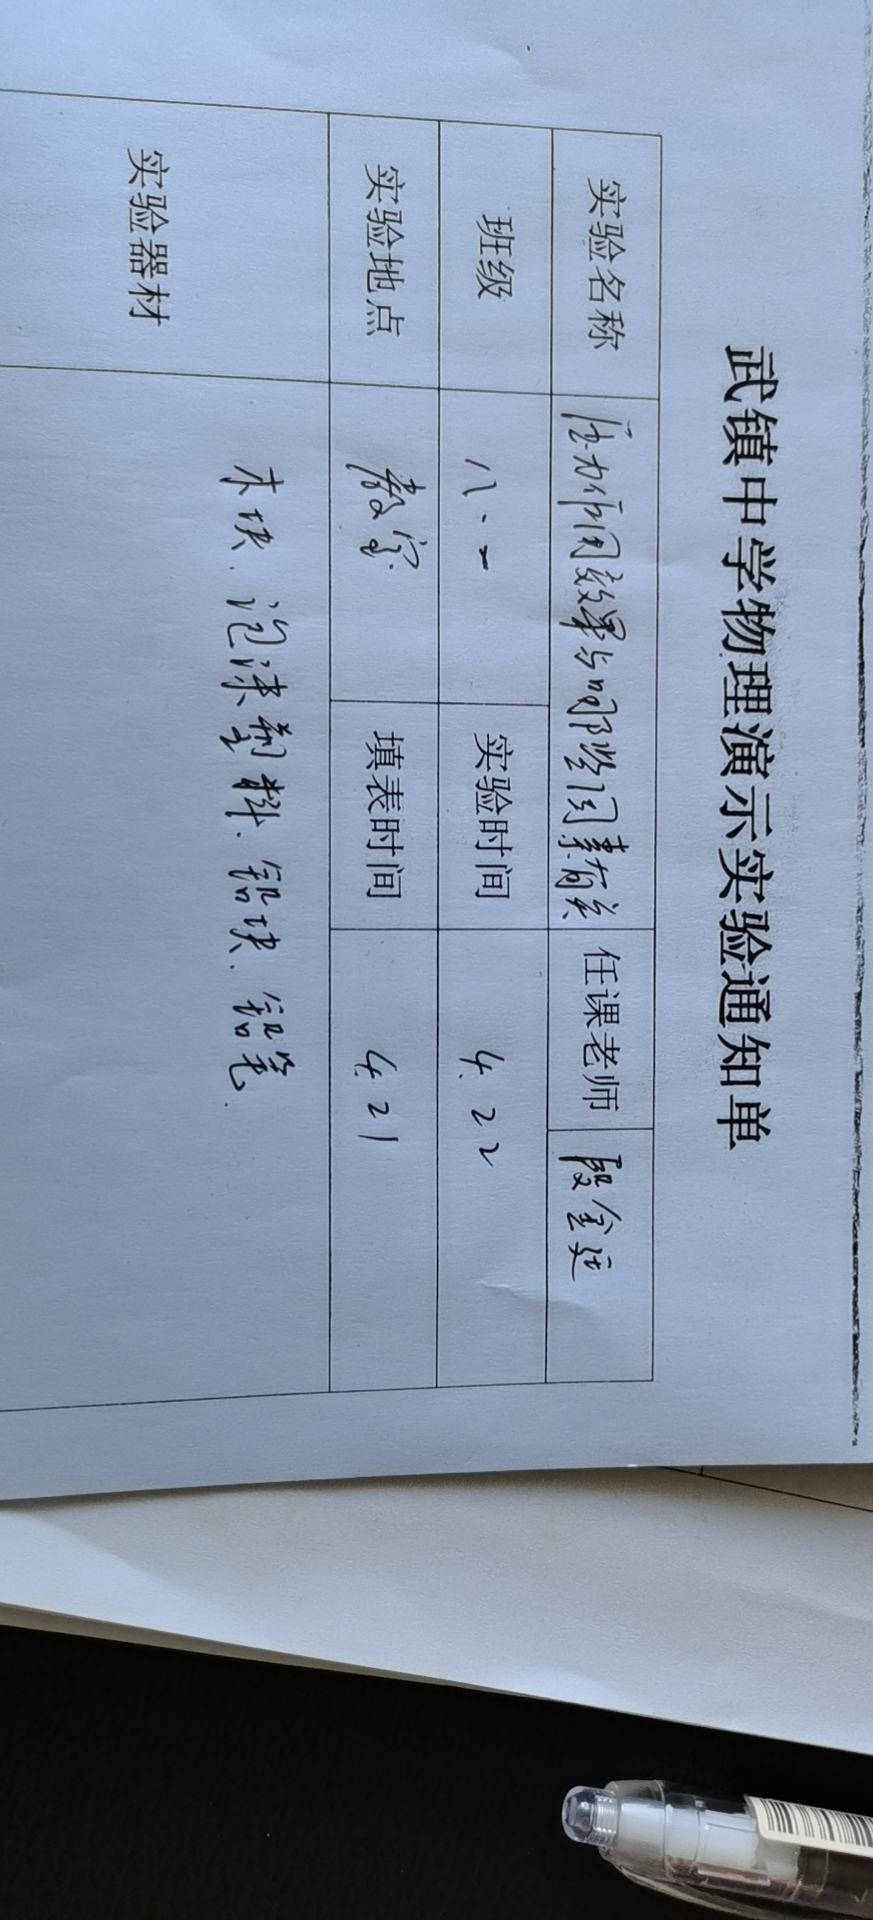 武镇中学物理演示实验通知单
实验名称 压力作用效果与哪些因素有关 任课老师 段全廷
班级 八.二 实验时间 4.22
实验地点 教室. 填表时间 4.21
实验器材 木块.泡沫塑料.铅块.铅笔.